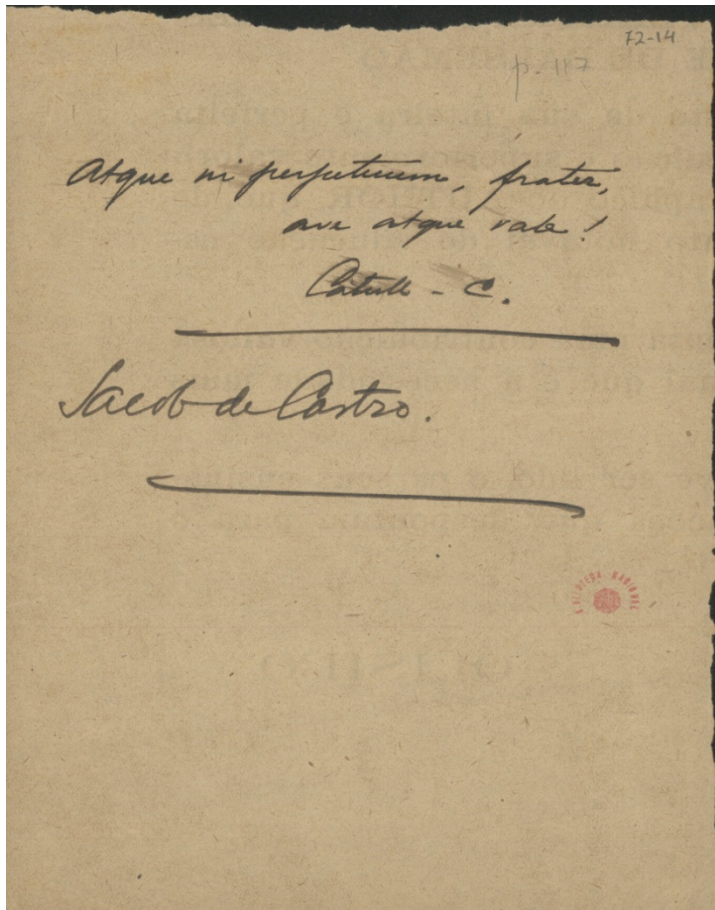 72-14
p. 117
Atque in perpetuum, frater,
ave atque vale!
Catull – C.
Jacob de Castro.
BIBLIOTECA NACIONAL